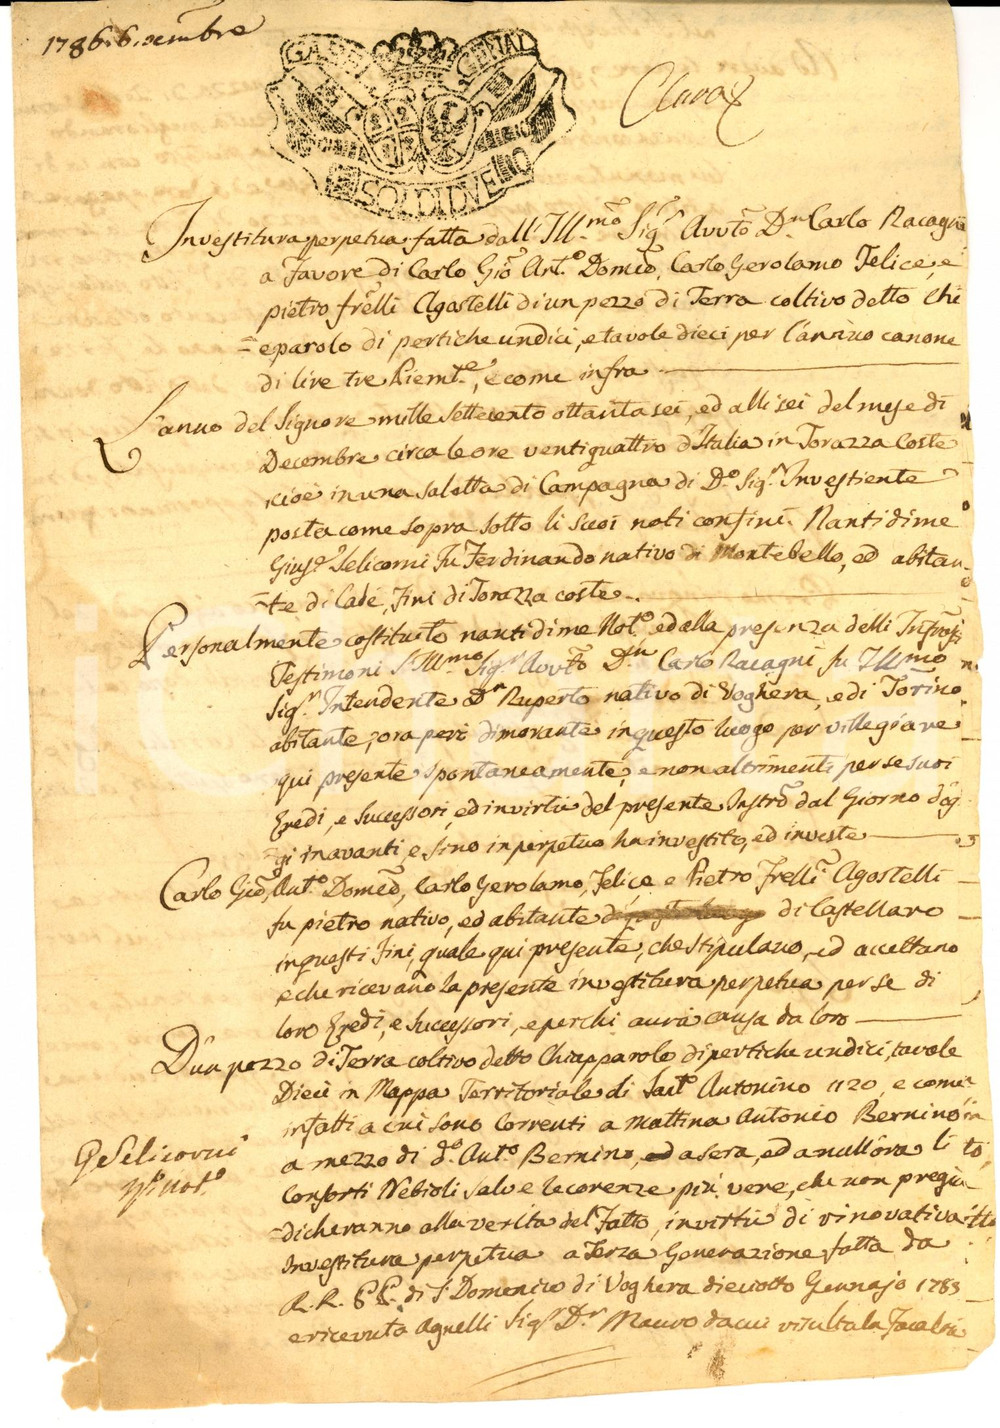 1786. 6. xcembre
GABE SENAL
SOLDI DVE
Investitura perpetua fatta dall' Ill.mo Sig.r Avv.to D.n Carlo Racagni
a Favore di Carlo Gio Ant.o Domco, Carlo Gerolamo Felice, e
pietro frelli Agostelli di un pezzo di Terra coltivo detto Chi
= eparolo di pertiche undici, e tavole dieci per l'annuo canone
di lire tre Piemte, e come infra
L'anno del Signore mille settecento ottanta sei, ed alli sei del mese di
Decembre circa le ore ventiquattro d'Italia in Torazza Coste
cioè in una saletta di Campagna di D.o Sig.r Investiente
posta come sopra sotto li suoi noti confini. Nanti di me
Gius.e Selicorni fu Ferdinando nativo di Montebello, ed abitan-
-te di Cadè, fini di Torazza coste.
Personalmente costituito nanti di me Not.o ed alla presenza delli Infrasti
Testimoni l'Ill.mo Sig.r Avv.to D.n Carlo Racagni fu Ill.mo
Sig.r Intendente D.n Ruperto nativo di Voghera, e di Torino
abitante, ora però dimorante in questo luogo per villegiare
qui presente spontaneamente, e non altrimenti per se suoi
Eredi, e Successori, ed in virtù del presente Instro dal Giorno d'og
= gi in avanti, e sino in perpetuo ha investito, ed investe
Carlo Gio, Ant.o Domco, Carlo Gerolamo, Felice e Pietro Frelli Agostelli
fu pietro nativo, ed abitante di Castellaro
in questi fini, quale qui presente, che stipulano, ed accettano
e che ricevano la presente investitura perpetua per se di
loro Eredi, e Successori, e per chi avrà causa da loro
D'un pezzo di Terra coltivo detto Chiapparolo di pertiche undici, tavole
Dieci in Mappa Territoriale di Sant.o Antonino 1120, e come
infatti a cui sono Correnti a mattina Antonio Bernino in
a mezzo di d.o Ant.o Bernino, a sera, ed a null'ora li
Consorti Nebioli salve le corenze più vere, che non pregiu-
-dicheranno alla verità del Fatto, in virtù di rinovativa
Investitura perpetua a Terza Generazione fatta da
R. R. P P. di S. Domenico di Voghera dieciotto Gennajo 1783
e ricevuta Agnelli Sig.r D.r Mauro da cui risulta la Facoltà
G Selicorni
Not.o